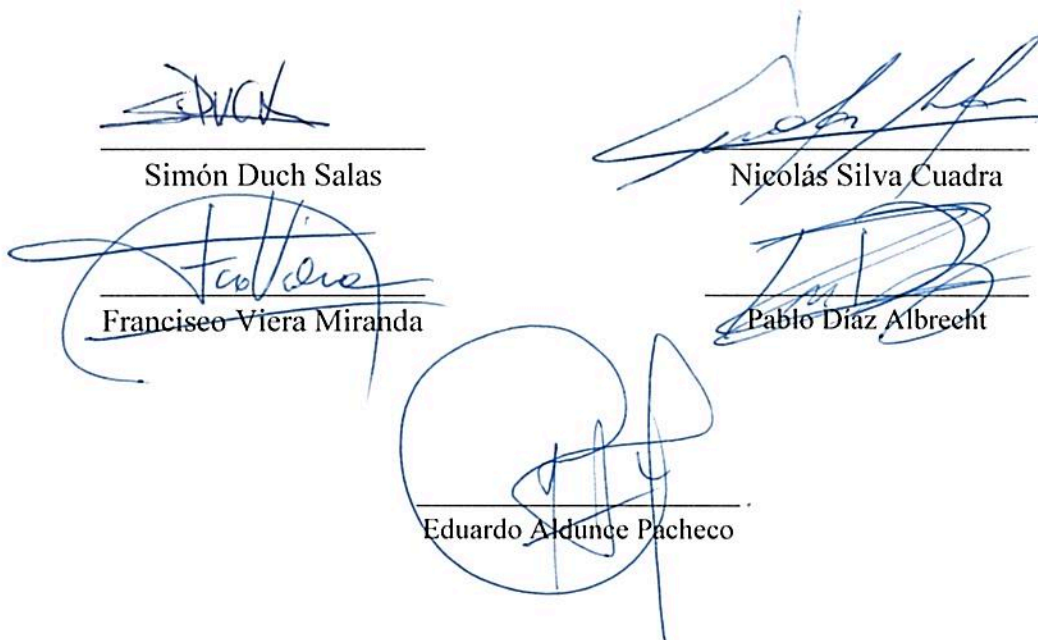 SiDUCH
Simón Duch Salas
Nicolás Silva Cuadra
Fco Viera
Francisco Viera Miranda
Pablo Díaz Albrecht
Eduardo Aldunce Pacheco